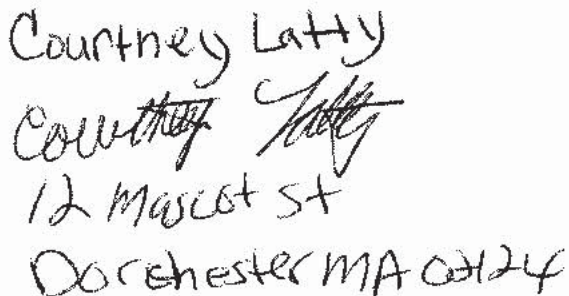 Courtney Latty
Courtney Latty
12 Mascot St
Dorchester MA 02124